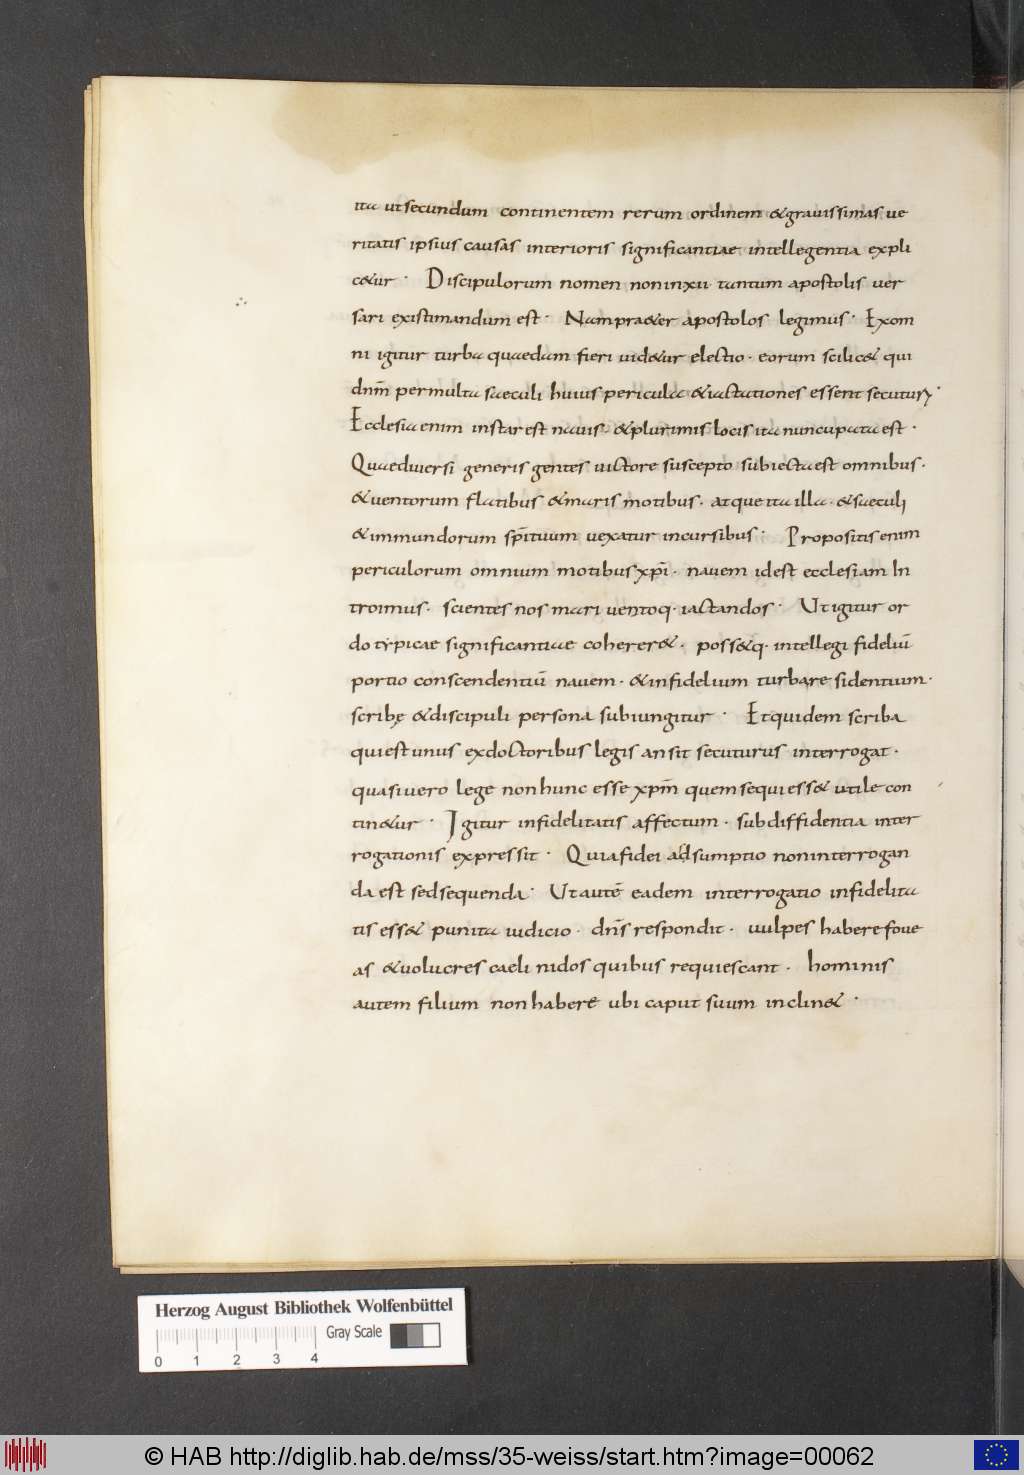 ita ut secundum continentem rerum ordinem & grauissimas ue
ritatis ipsius causas interioris significantiae intellegentia expli
c&ur · Discipulorum nomen non in xii tantum apostolis uer
sari existimandum est · Nam praet&er apostolos legimus · Ex om
ni igitur turba quaedam fieri uid&ur electio · eorum scilic& qui
dnm̄ permulta saeculi huius pericula & iactationes essent secuturi ·
Ecclesia enim instar est nauis · & plurimis locis ita nuncupata est ·
Quae diuersi generis gentes uictore suscepto subiecta est omnibus ·
& uentorum flatibus & maris motibus · atque ita illa · & saeculi
& inmundorum spirituum uexatur incursibus · Propositis enim
periculorum omnium motibus xp̄i · nauem id est ecclesiam In
troimus · scientes nos mari uentoq · iactandos · Ut igitur or
do typicae significantiae coherer& · poss&q · intellegi fideliū
portio conscendentiū nauem · & infidelium turbare sidentium ·
scribę & discipuli persona subiungitur · Et quidem scriba
qui est unus ex doctoribus legis an sit secuturus interrogat ·
quasi uero lege non hunc esse xpm̄ quem sequi ess& utile con
tin&ur · Igitur infidelitatis affectum · sub diffidentia inter
rogationis expressit · Quia fidei adsumptio non interrogan
da est sed sequenda · Ut autē eadem interrogatio infidelita
tis ess& punita iudicio · dn̄s respondit · uulpes habere foue
as & uolucres caeli nidos quibus requiescant · hominis
autem filium non habere ubi caput suum inclin& ·
Herzog August Bibliothek Wolfenbüttel
Gray Scale
0 1 2 3 4
© HAB http://diglib.hab.de/mss/35-weiss/start.htm?image=00062